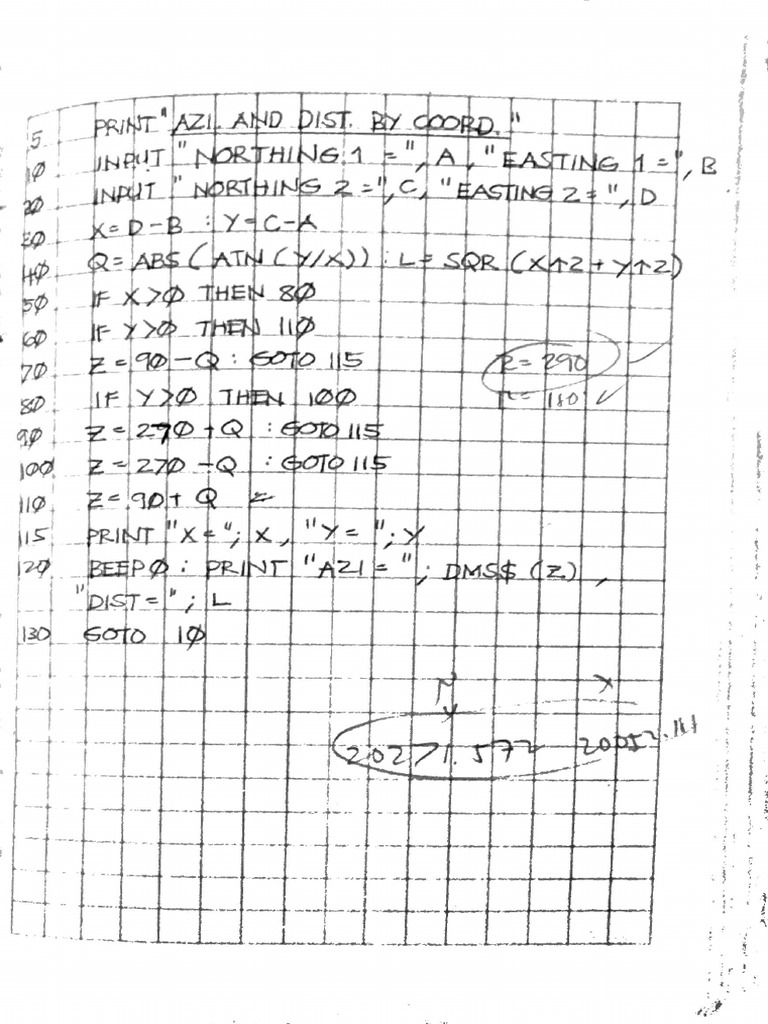 5 PRINT "AZI. AND DIST. BY COORD."
10 INPUT "NORTHING 1 =", A, "EASTING 1 =", B
20 INPUT "NORTHING 2 =", C, "EASTING 2 = ", D
30 X= D-B : Y= C-A
40 Q= ABS (ATN (Y/X)) : L= SQR (X↑2 + Y↑2)
50 IF X>0 THEN 80
60 IF Y>0 THEN 110
70 Z = 90 - Q : GOTO 115
R = 290
80 IF Y>0 THEN 100
180 ✓
90 Z = 270 + Q : GOTO 115
100 Z = 270 - Q : GOTO 115
110 Z = 90 + Q
115 PRINT "X = "; X, "Y = "; Y
120 BEEP0 : PRINT "AZI = "; DMS$ (Z),
"DIST = "; L
130 GOTO 10
N X
Y
20271.572 20052.161